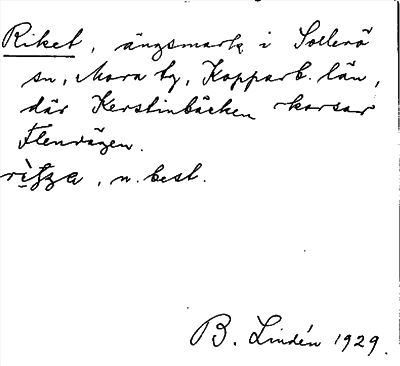 Riket, ängsmark i Sollerö
sn, Mora tg, Kopparb. län,
där Kerstinbäcken korsar
Flenvägen.
n. best.
B. Lindén 1929.